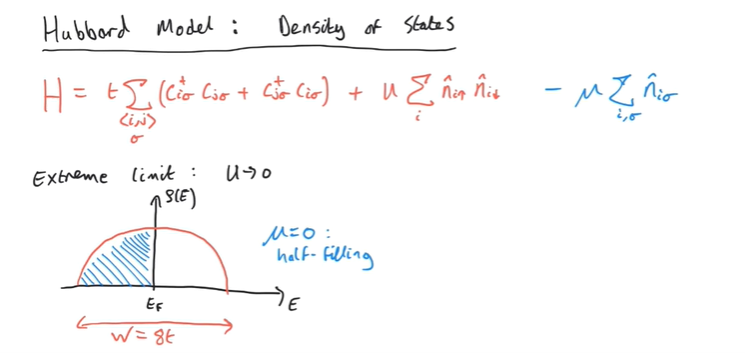 Hubbard Model : Density of states
H = t Σ_{<i,j> σ} (c†_{iσ} c_{jσ} + c†_{jσ} c_{iσ}) + U Σ_i n̂_{i↑} n̂_{i↓} - μ Σ_{i,σ} n̂_{iσ}
Extreme limit : U→0
ρ(E)
μ=0 :
half-filling
E_F
E
W = 8t